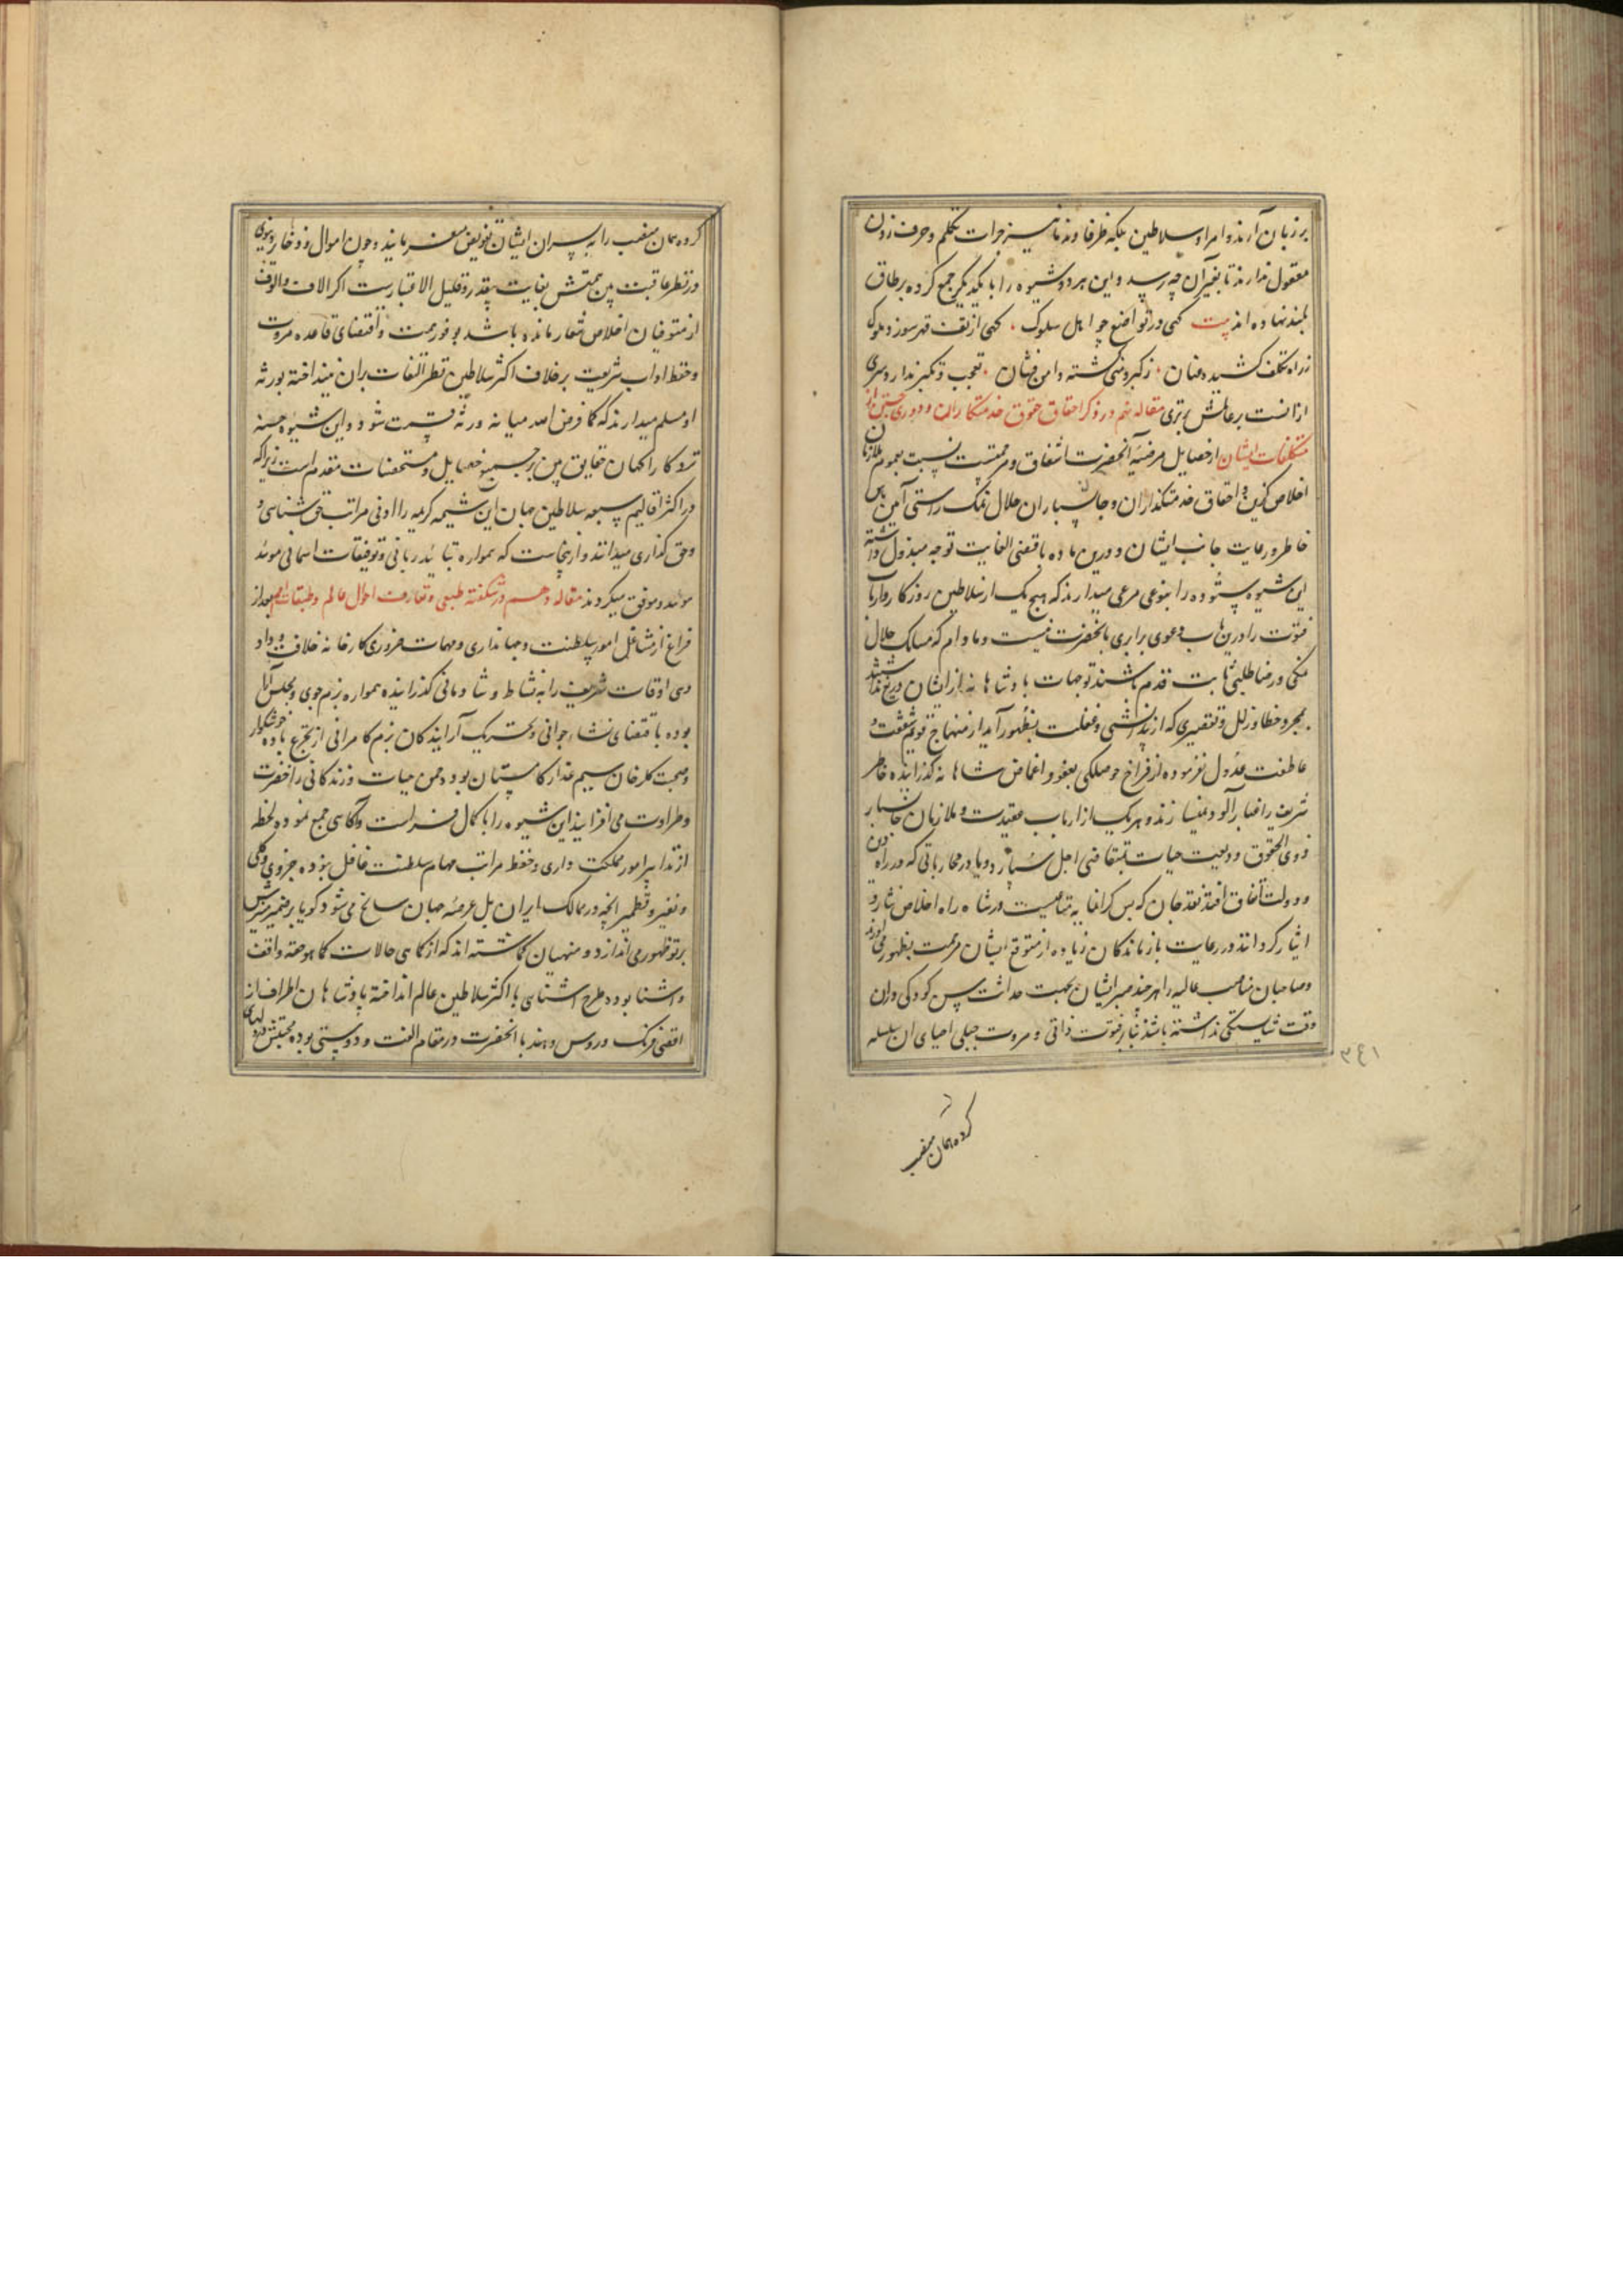 بر زبان آرند و امرا و سلاطین بلکه ظرفا و ندما نیز جرات تکلم و حرف زدن
معقول ندارند تا بغیر آن چه رسد و این هر دو شیوه را با یکدیگر جمع کرده بر طاق
بلند نهاده اند بیت گهی در تواضع چو اهل سلوک گهی از تف قهر سوزد ملوک
ز راه تکلف کشیده عنان ز کبر و منی گشته دامن فشان تعجب و تکبر ندارد سری
ازانست بر عالمش برتری مقاله نهم در ذکر احقاق حقوق خدمتکاران و دوری جستن از
متکلفات ایشان از خصایل مرضیه آنحضرت اشفاق و مرحمتست نسبت بعموم ملازمان
اخلاص گزین و احقاق خدمتگذاران و جانسپاران حلال نمک راستی آئین پاس
خاطر و رعایت جانب ایشان و درین ماده باقصی الغایت توجه مبذول داشته
این شیوه ستوده را بنوعی مرعی میدارند که هیچ یک از سلاطین روزگار و ارباب
فتوت را درین باب دعوی برابری بانحضرت نیست و مادام که مسالک حلال
نمکی و رضا طلبی ثابت قدم باشند توجهات پادشاهانه از ایشان دریغ نداشته
بمجرد خطا و زلل و تقصیری که از بیدانشی و غفلت بظهور آید از منهاج قویم شفقت و
عاطفت عدول نفرموده از فراخ حوصلگی بعفو و اغماض شاهانه گذرانیده خاطر
شریف را غبار آلود نمیسازند و هر یک از ارباب عقیدت و ملازمان جانسپار
ذوی الحقوق ودیعت حیات بتقاضی اجل سپارد و یا در محارباتی که در راه دین
و دولت اتفاق افتد نقد جان که بس گرانمایه متاعیست در شاه راه اخلاص نثار و
ایثار گردانند در رعایت بازماندگان زیاده از متوقع ایشان مرحمت بظهور می آورند
و صاحبان مناصب عالیه را هر چند صبر ایشان بجهت حداثت سن کودکی در ان
وقت شایستگی نداشته باشد بنا بر فتوت ذاتی و مروت جبلی احیای ان سلسله
۳۴۱
کرده همان منصب
کرده همان منصب را به پسران ایشان تفویض میفرمایند و چون اموال و ذخایر دنیوی
در نظر عاقبت بین همتش بغایت بیقدر و قلیل الاعتبارست اگر الاف و الوف
از متوفیان اخلاص شعار مانده باشد بوفور همت و اقتضای قاعده مروت
و حفظ اداب شریعت بر خلاف اکثر سلاطین نظر التفات بران نینداخته بورثه
او مسلم میدارند که کما فرض الله میانه ورثه قسمت شود و این شیوه حسنه
نزد کار اگهان حقایق بین بر جمیع خصایل و مستحسنات مقدم است زیرا که
در اکثر اقالیم سبعه سلاطین جهان این شیمه کریمه را ادنی مراتب حق شناسی و
و حق گذاری میدانند و ازینجاست که همواره بتائید ربانی و توفیقات اسمانی موئد
موئد و موفق میگردند مقاله دهم در شکفته طبعی و تعارف احوال عالم و طبقات امم بعد از
فراغ از مشاغل امور سلطنت و جهانداری و مهمات ضروری کارخانه خلافت و داد
دهی اوقات شریف را به نشاط و شادمانی گذرانیده همواره بزم جوی و مجلس آرا
بوده باقتضای نشاء جوانی و تحریک آرایندکان بزم کامرانی از تجرع باده خوشگوار
و صحبت گلرخان سیم عذار کام ستان بود و چمن حیات و زندگانی را خضرت
و طراوت می افزایند این شیوه را با کمال فراست و آگاهی جمع نموده لحظه
از تدابیر امور مملکت داری و حفظ مراتب مهام سلطنت غافل نبوده جزوی و کلی
و نقیر و قطمیر انچه در ممالک ایران بل عرصه جهان سانح می شود گویا بر ضمیر منیرش
پرتو ظهور می اندازد و منهیان گماشته اند که از کاهی حالات کما هو حقه واقف
و اشنا بود و طرح اشنایی با اکثر سلاطین عالم انداخته پادشاهان اطراف از
اقصی فرنگ و روس و هند با انحضرت در مقام الفت و دوستی بوده